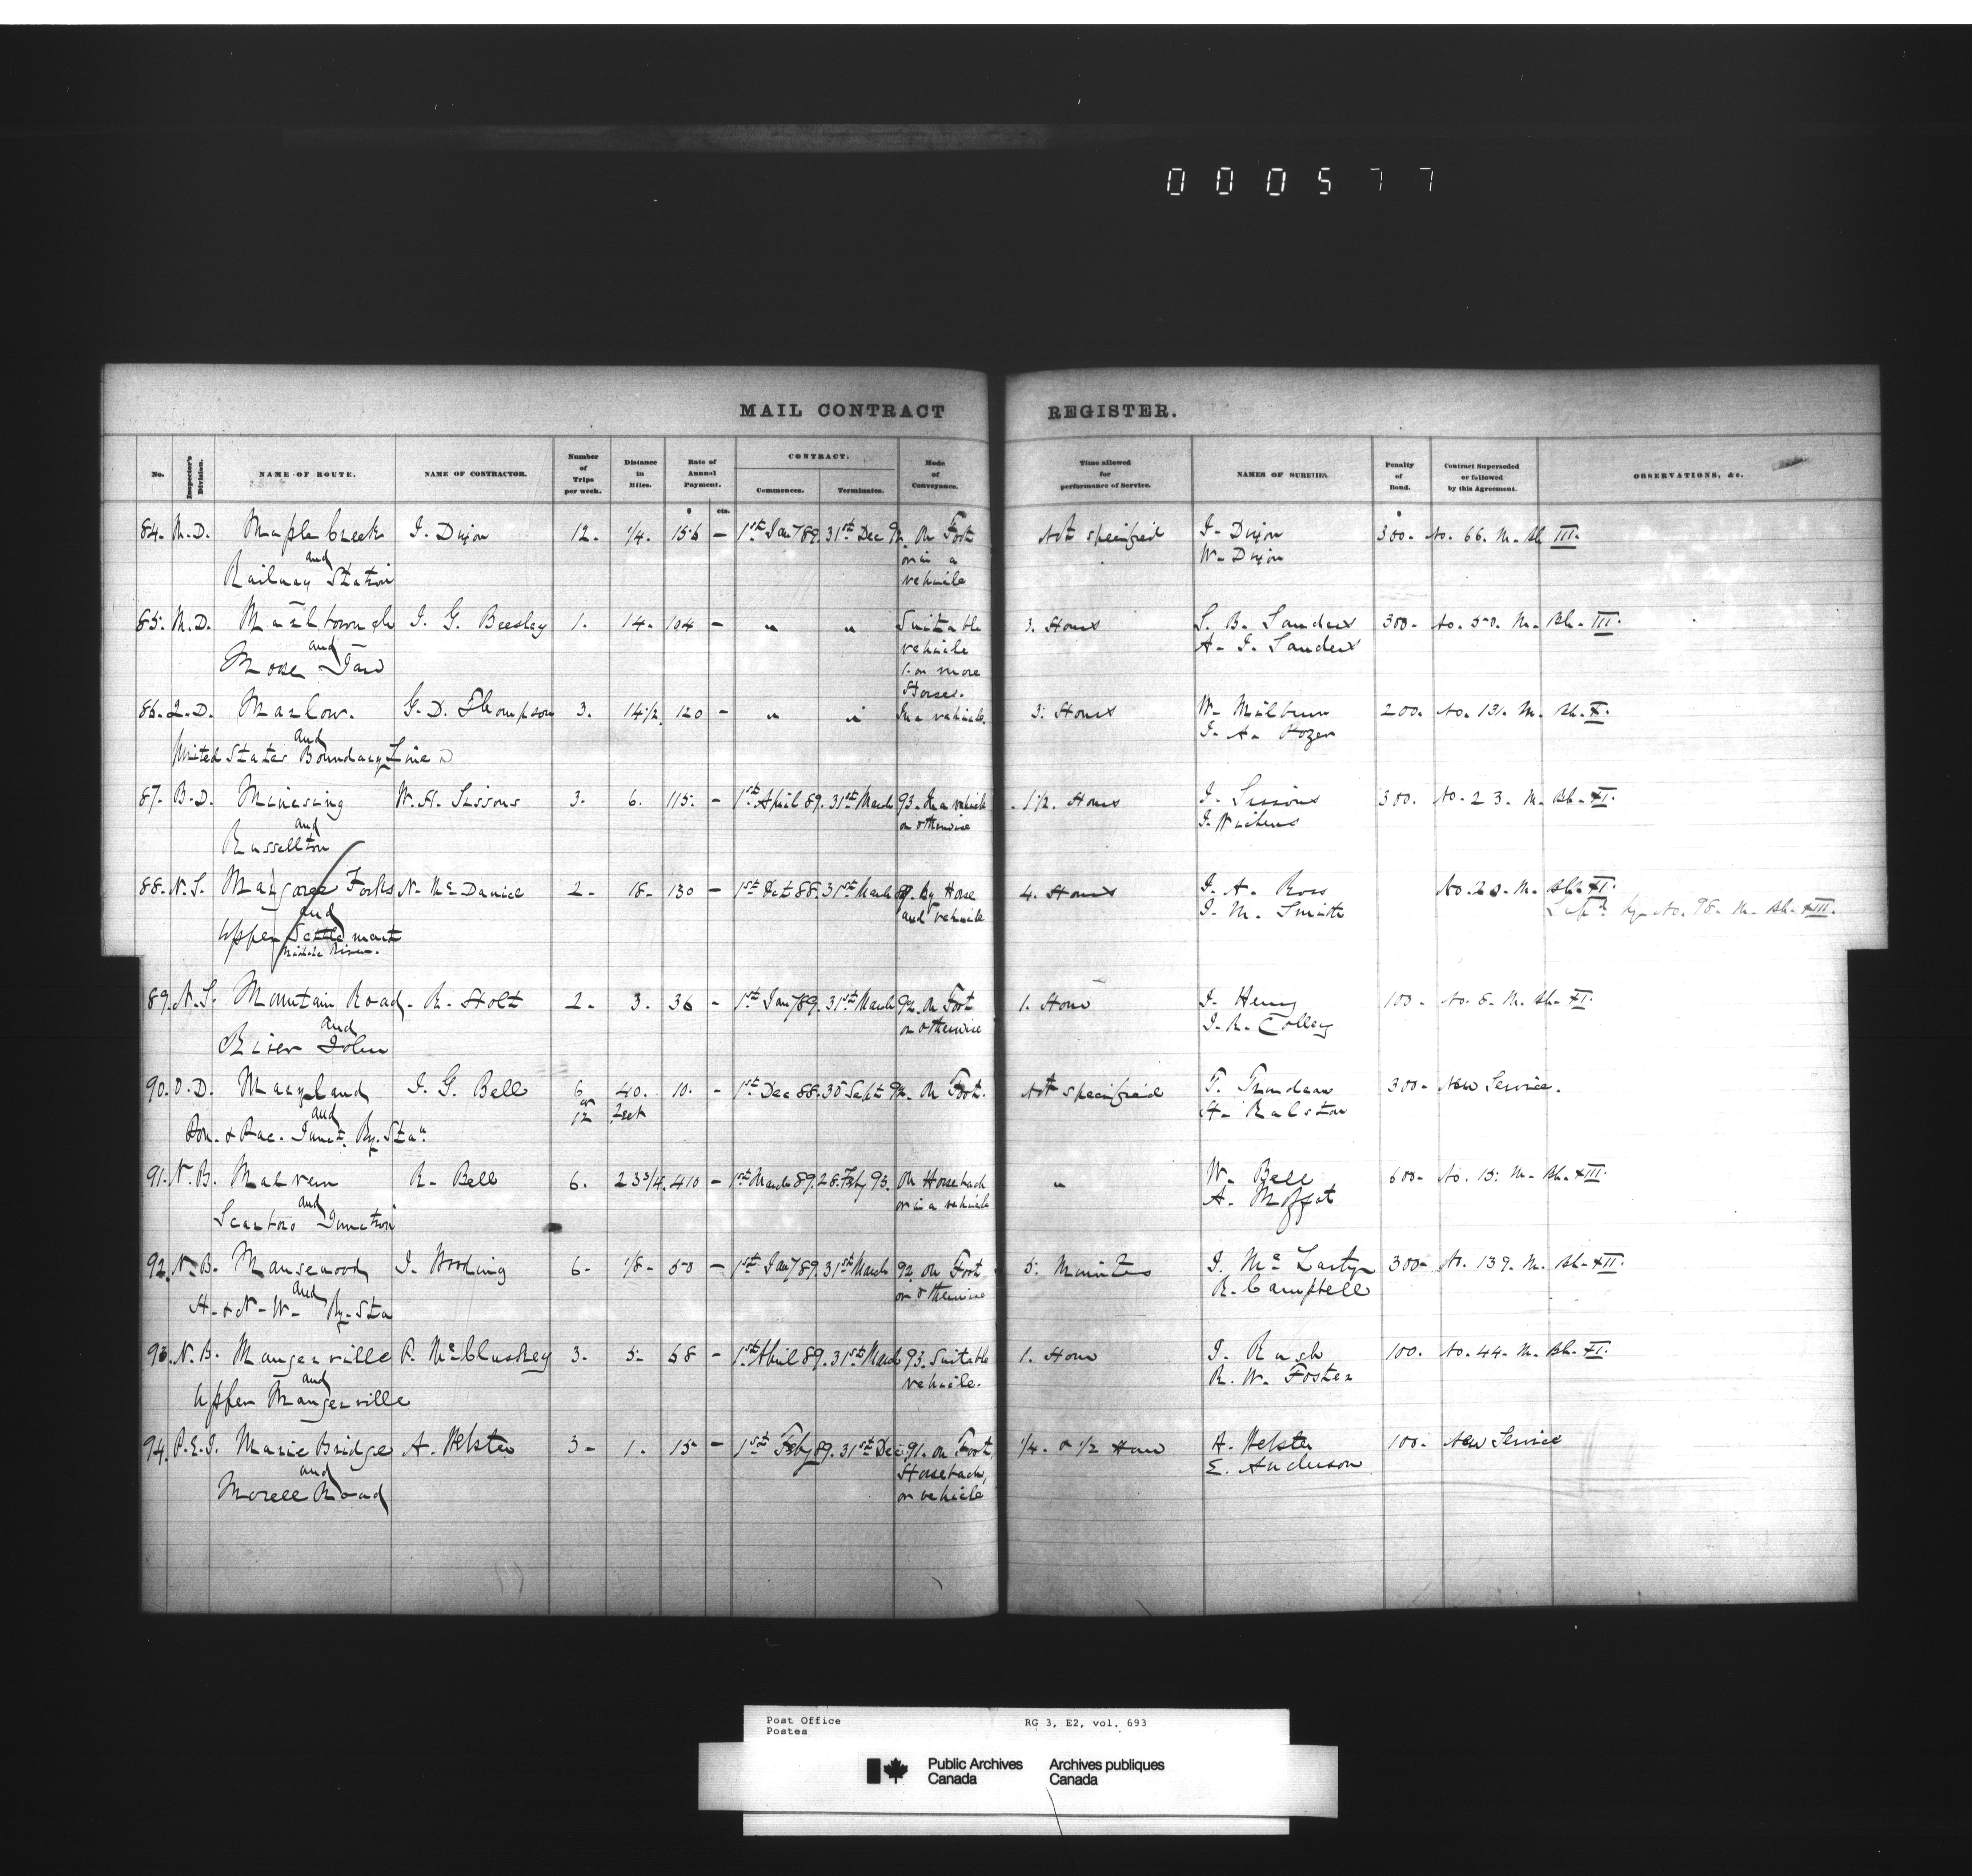 000577
MAIL CONTRACT REGISTER.
No. Inspector's Division. NAME OF ROUTE. NAME OF CONTRACTOR. Number of Trips per week. Distance in Miles. Rate of Annual Payment. CONTRACT. Commences. Terminates. Mode of Conveyance. Time allowed for performance of Service. NAMES OF SURETIES. Penalty of Bond. Contract Superseded or followed by this Agreement. OBSERVATIONS, &c.
$ cts.
84. M.D. Maple Creek J. Dixon 12. 1/4. 156 - 1st Jany 89. 31st Dec 92. On Foot Not specified J. Dixon 300. No. 66. M. Bk III.
and or in a W. Dixon
Railway Station vehicle
85. M.D. Marlborough J. G. Beesley 1. 14. 104 - " " Suitable 3. Hours S. B. Sanders 300. No. 50. M. Bk. III.
and vehicle A. J. Sanders
Moose Jaw 1. or more
Horses.
86. Q.D. Marlow. G. D. Thompson 3. 14 1/2. 120 - " " In a vehicle. 3. Hours W. Milburn 200. No. 131. M. Bk. X.
and J. A.
United States Boundary Line
87. B.D. Minesing W. H. Sissons 3. 6. 115. - 1st April 89. 31st March 93. In a vehicle 1 1/2. Hours J. Sissons 300. No. 23. M. Bk. XI.
and or otherwise J.
Russellton
88. N.S. Margaree Forks N. McDaniel 2. 18. 130 - 1st Oct 88. 31st March 89. By Horse 4. Hours J. A. Ross No. 20. M. Bk. XI.
and and vehicle J. M. Smith Supd. by No. 98. M. Bk. XIII.
Upper Settlement
River.
89. N.S. Mountain Road. R. Holt 2. 3. 36 - 1st Jany 89. 31st March 92. On Foot 1. Hour J. Henry 100. No. 8. M. Bk. XI.
and or otherwise J. R. Colley
River John
90. O.D. Maryland J. G. Bell 6 40. 10. - 1st Dec 88. 30 Sept 92. On Foot. Not specified T. Trudeau 300. New Service.
and or 12 feet H. Ralston
Pon. & Pac. Junct. Ry. Stan
91. N.B. Malvern R. Bell 6. 23 3/4. 410 - 1st March 89. 28. Feby 93. On Horseback " W. Bell 600. No. 15. M. Bk. XII.
and or in a vehicle A. Moffat
Scarboro Junction
92. N.B. Mansewood J. Wooding 6. 1/8. 50 - 1st Jany 89. 31st March 92. On Foot 5. Minutes J. McLarty 300. No. 139. M. Bk. XII.
and or otherwise R. Campbell
H. & N. W. Ry. Sta
93. N.B. Maugerville P. McCluskey 3. 5. 68 - 1st April 89. 31st March 93. Suitable 1. Hour J. Rush 100. No. 44. M. Bk. XI.
and vehicle. R. W. Foster
Upper Maugerville
94. P.E.I. Marie Bridge A. Webster 3. 1. 15 - 1st Feby 89. 31st Dec. 91. On Foot, 1/4. & 1/2 Hour A. Webster 100. New Service
and Horseback, E. Anderson
Morell Road or vehicle
Post Office RG 3, E2, vol. 693
Postes
Public Archives Archives publiques
Canada Canada